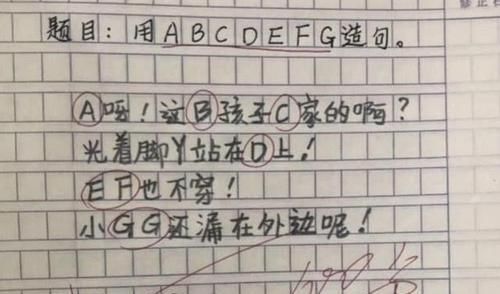 题目:用ABCDEFG造句。
A呀!这B孩子C家的啊?
光着脚丫站在D上!
EF也不穿!
小GG还漏在外边呢!
100分